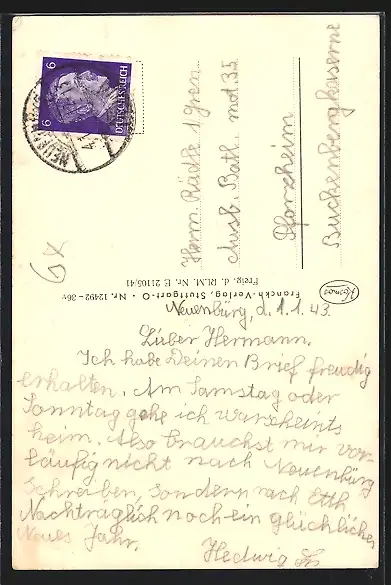 6
6
DEUTSCHES REICH
Herrn Rüdle 1/Gren.
Ausb. Batl. mot. 35
Pforzheim
Buckenbergkaserne
6x
Kosmos
Franckh-Verlag, Stuttgart-O · Nr. 12492-36v
Freig. d. RLM. Nr. E 21105/41
Neuenbürg, d. 1.1.43.
Lieber Hermann.
Ich habe Deinen Brief freudig
erhalten. Am Samstag oder
Sonntag gehe ich warscheints
heim. Also brauchst mir vor-
läufig nicht nach Neuenbürg
Schreiben, sondern nach Ettl
Nachträglich noch ein glückliches
Neues Jahr.
Hedwig